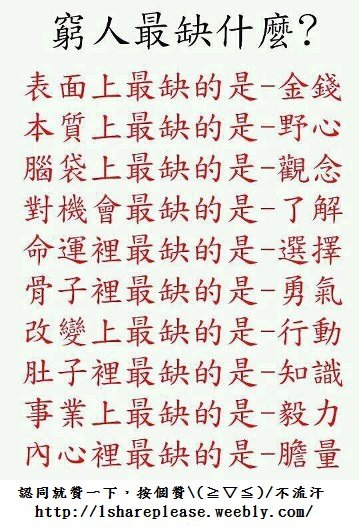 窮人最缺什麼?
表面上最缺的是-金錢
本質上最缺的是-野心
腦袋上最缺的是-觀念
對機會最缺的是-了解
命運裡最缺的是-選擇
骨子裡最缺的是-勇氣
改變上最缺的是-行動
肚子裡最缺的是-知識
事業上最缺的是-毅力
內心裡最缺的是-膽量
認同就贊一下，按個贊\(≧▽≦)/不流汗
http://1shareplease.weebly.com/